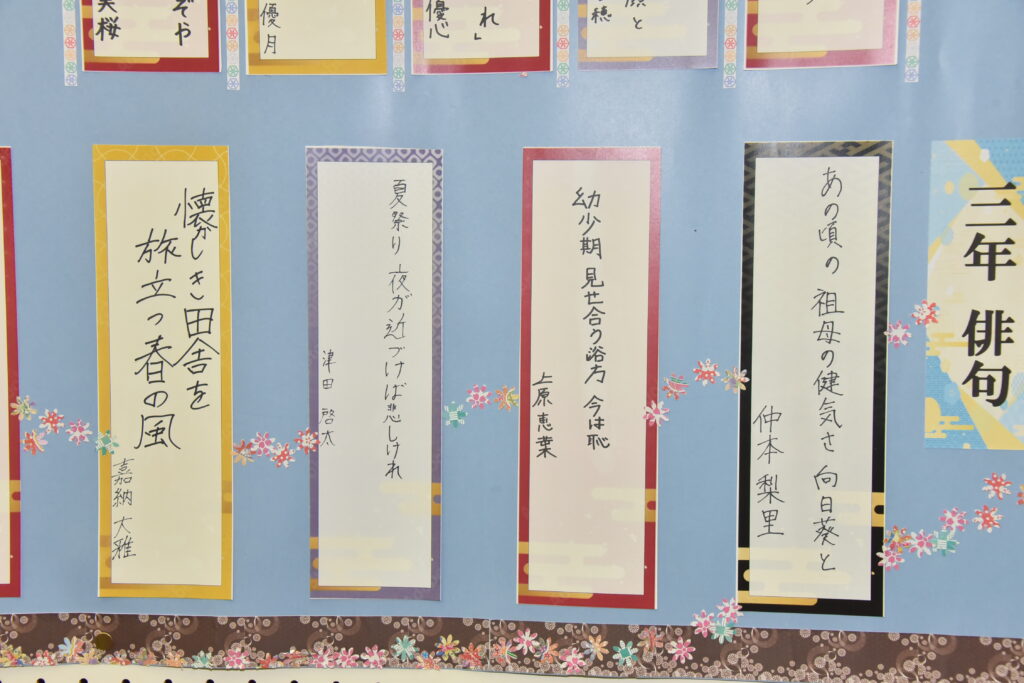 三年 俳句
あの頃の 祖母の健気さ 向日葵と
仲本 梨里
幼少期 見せ合う浴衣 今は恥
上原 恵葉
夏祭り 夜が近づけば悲しけれ
津田 啓太
懐かしき田舎を
旅立つ春の風
嘉納 大雅
と
穂
れ」
優心
優月
ぞや
美桜